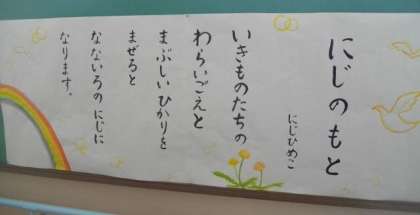 にじのもと
にじひめこ
いきものたちの
わらいごえと
まぶしいひかりを
まぜると
なないろの にじに
なります。